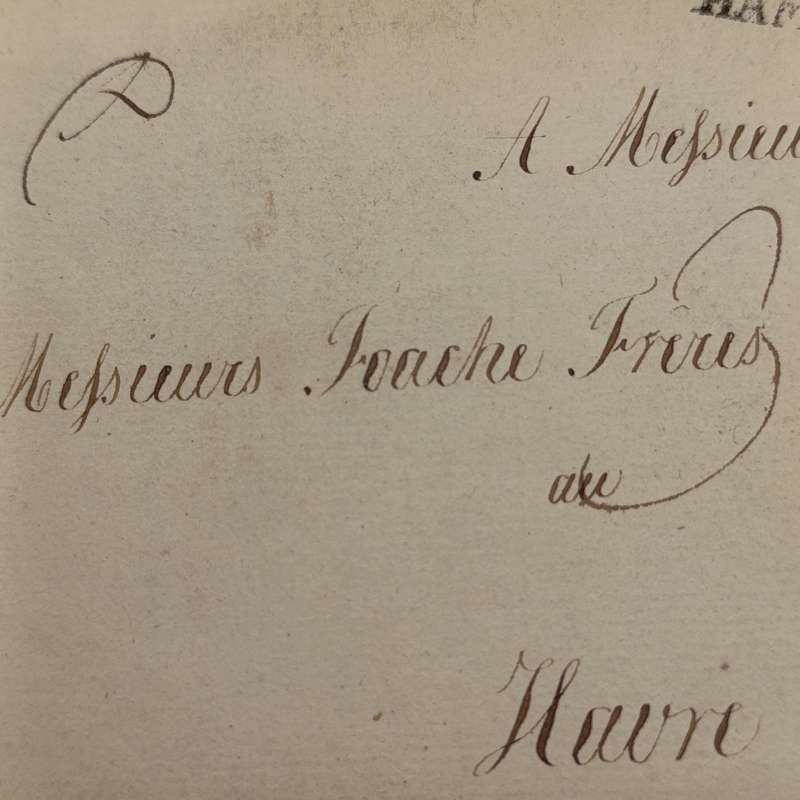 A Messieu
Messieurs Foache Frères
au
Havre